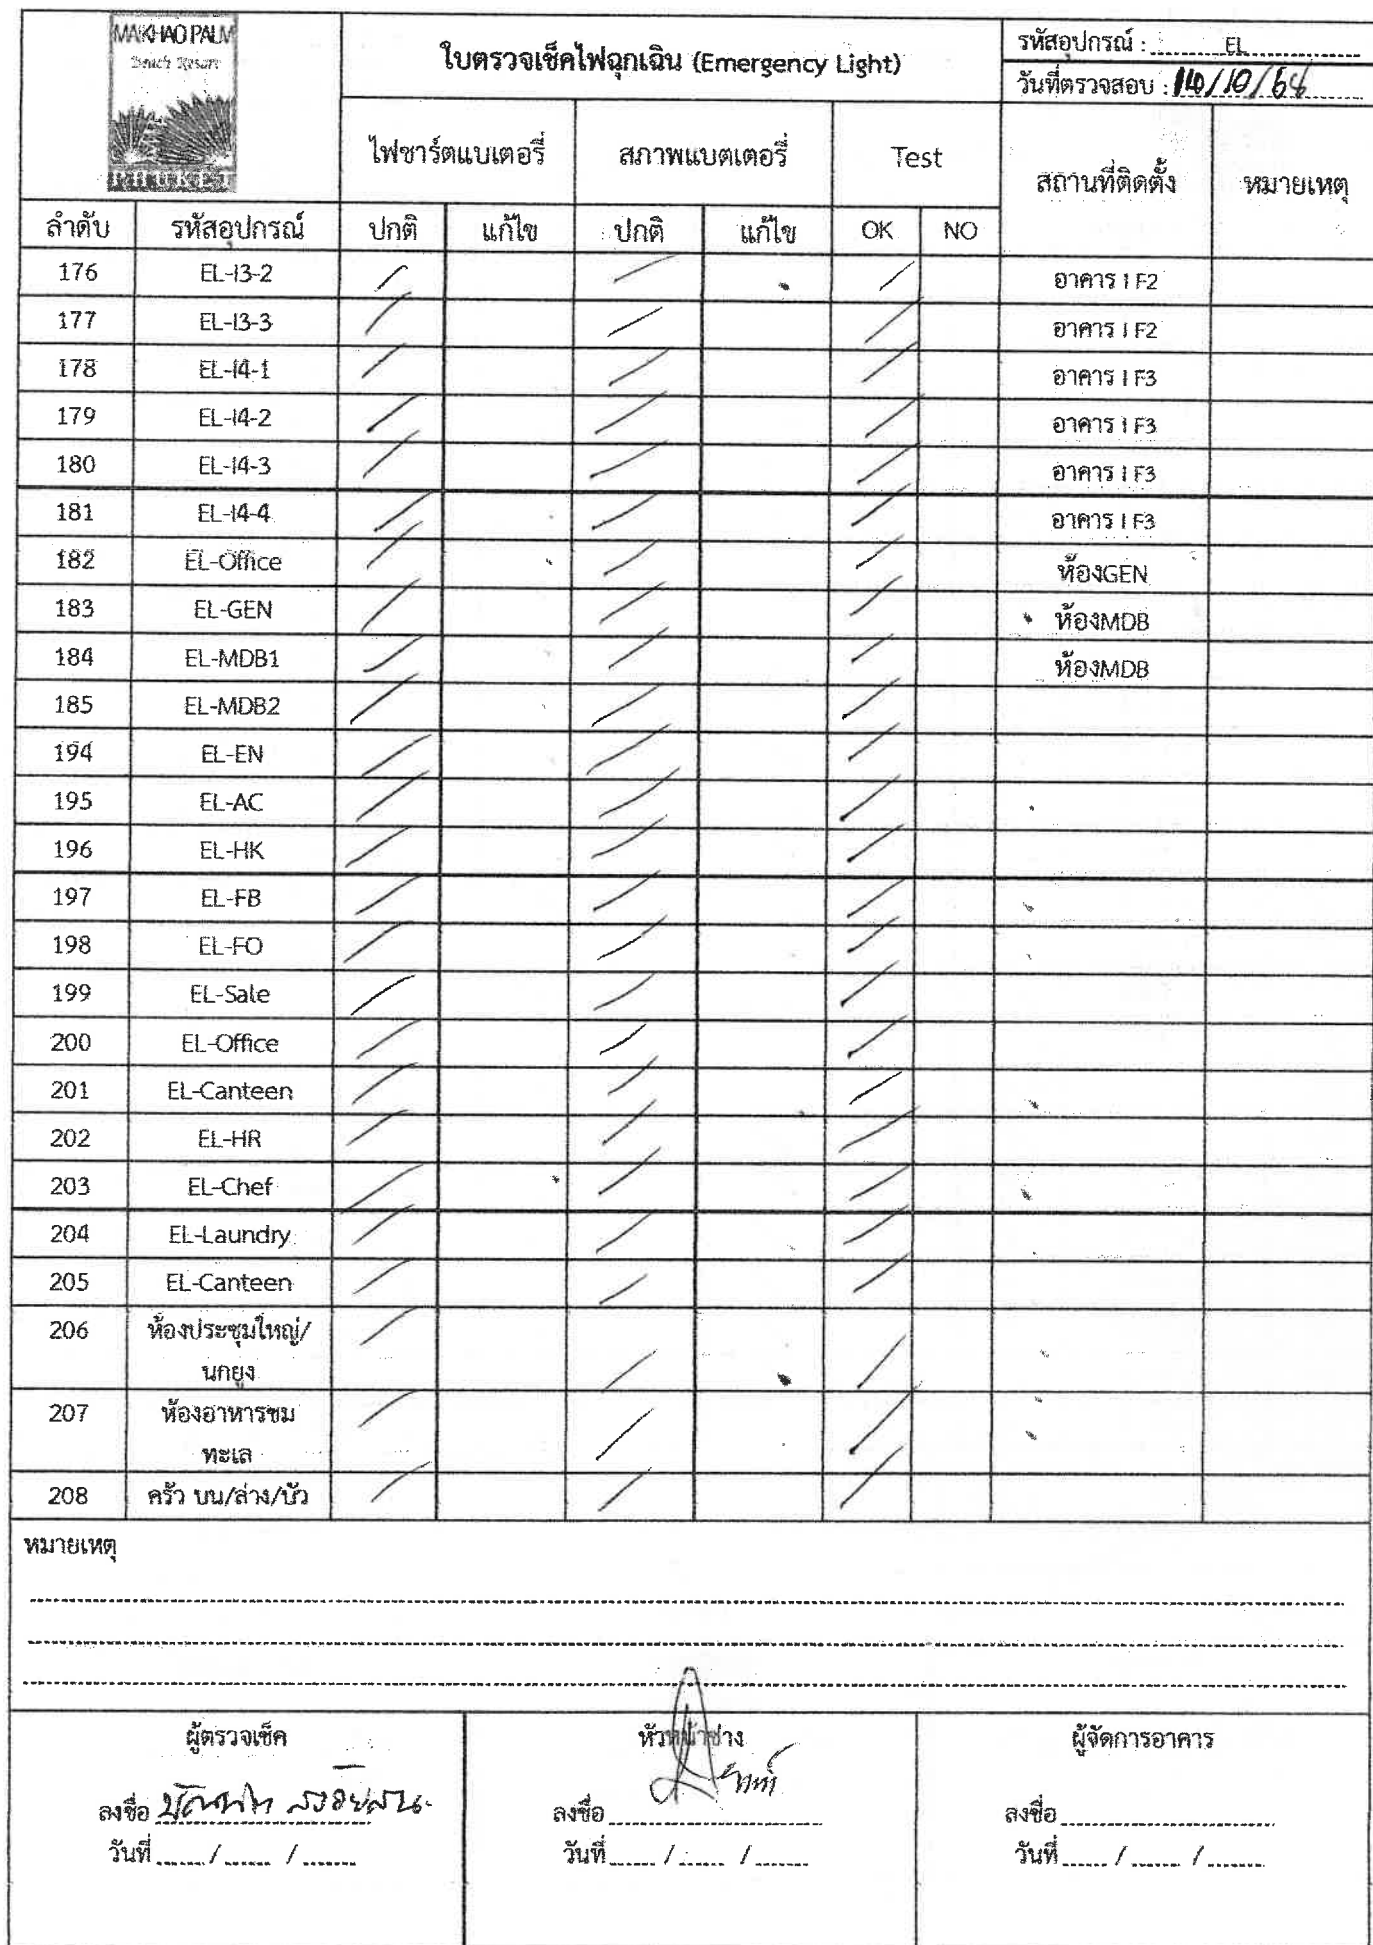 MAIKHAO PALM
Beach Resort
PHUKET
ใบตรวจเช็คไฟฉุกเฉิน (Emergency Light)
รหัสอุปกรณ์ : EL
วันที่ตรวจสอบ : 14/10/68
ไฟชาร์ตแบเตอรี่ สภาพแบตเตอรี่ Test สถานที่ติดตั้ง หมายเหตุ
ลำดับ รหัสอุปกรณ์ ปกติ แก้ไข ปกติ แก้ไข OK NO
176 EL-I3-2 / / / อาคาร I F2
177 EL-I3-3 / / / อาคาร I F2
178 EL-I4-1 / / / อาคาร I F3
179 EL-I4-2 / / / อาคาร I F3
180 EL-I4-3 / / / อาคาร I F3
181 EL-I4-4 / / / อาคาร I F3
182 EL-Office / / / ห้องGEN
183 EL-GEN / / / ห้องMDB
184 EL-MDB1 / / / ห้องMDB
185 EL-MDB2 / / /
194 EL-EN / / /
195 EL-AC / / /
196 EL-HK / / /
197 EL-FB / / /
198 EL-FO / / /
199 EL-Sale / / /
200 EL-Office / / /
201 EL-Canteen / / /
202 EL-HR / / /
203 EL-Chef / / /
204 EL-Laundry / / /
205 EL-Canteen / / /
206 ห้องประชุมใหญ่/ / / /
นกยูง
207 ห้องอาหารชม / / /
ทะเล
208 ครัว บน/ล่าง/บัว / / /
หมายเหตุ
ผู้ตรวจเช็ค หัวหน้าช่าง ผู้จัดการอาคาร
ลงชื่อ ลงชื่อ ลงชื่อ
วันที่ / / วันที่ / / วันที่ / /